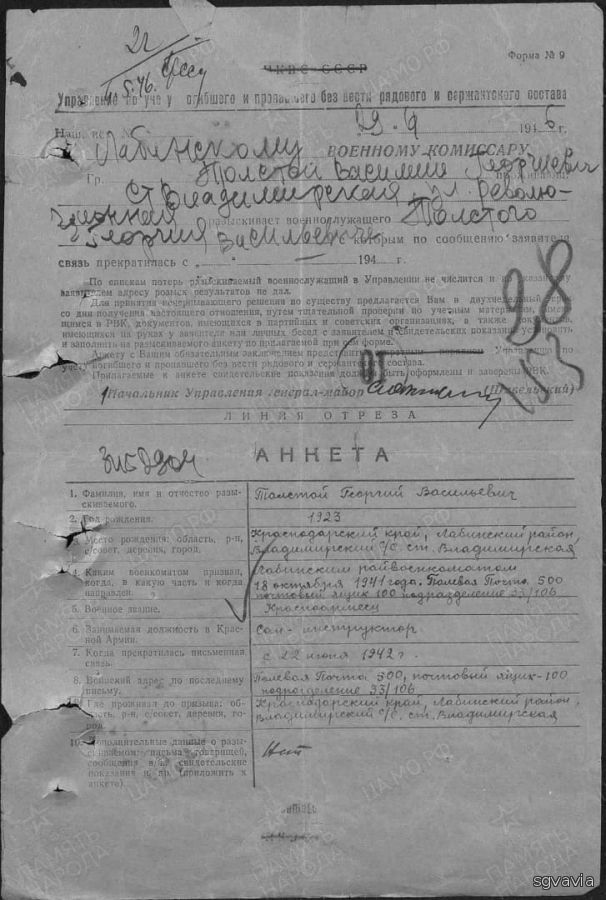 22
11.5.46.
Форма № 9
НКВС СССР
Управление по учету погибшего и пропавшего без вести рядового и сержантского состава
Наш исх. №
29. 9 1946 г.
Лабинскому ВОЕННОМУ КОМИССАРУ
Гр. Толстой Василий Георгиевич
ст. Владимирская, ул. Револю-
ционная разыскивает военнослужащего Толстого
Георгия Васильевича с которым по сообщению заявителя
связь прекратилась с 194 г.
По спискам потерь разыскиваемый военнослужащий в Управлении не числится и по указанному
заявителем адресу розыск результатов не дал.
Для принятия исчерпывающего решения по существу предлагается Вам в двухнедельный срок
со дня получения настоящего отношения, путем тщательной проверки по учетным материалам, имею-
щимся в РВК, документов, имеющихся в партийных и советских организациях, а также документов,
имеющихся на руках у заявителя или личных бесед с заявителем и свидетельских показаний установить
и заполнить на разыскиваемого анкету по прилагаемой при сем форме.
Анкету с Вашим обязательным заключением представить обратным порядком Управлению по
учету погибшего и пропавшего без вести рядового и сержантского состава.
Прилагаемые к анкете свидетельские показания должны быть оформлены и заверены РВК.
28
53
Начальник Управления генерал-майор (Шавельский)
ЛИНИЯ ОТРЕЗА
АНКЕТА
1. Фамилия, имя и отчество разы-
скиваемого.
Толстой Георгий Васильевич
2. Год рождения.
1923
3. Место рождения: область, р-н,
с/совет, деревня, город.
Краснодарский край, Лабинский район,
Владимирский с/с. ст. Владимирская
4. Каким военкоматом призван,
когда, в какую часть и когда
направлен.
Лабинским райвоенкоматом
18 октября 1941 года. Полевая Почта 500
почтовый ящик 100 подразделение 33/106
5. Военное звание.
Красноармеец
6. Занимаемая должность в Крас-
ной Армии.
Сан-инструктор
7. Когда прекратилась письменная
связь.
с 22 июня 1942 г.
8. Воинский адрес по последнему
письму.
Полевая Почта 500, почтовый ящик-100
подразделение 33/106
9. Где проживал до призыва: об-
ласть, р-н, с/совет, деревня, го-
род.
Краснодарский край, Лабинский район,
Владимирский с/с. ст. Владимирская
10. Дополнительные данные о разы-
скиваемом: письма товарищей,
сообщения в/ч, свидетельские
показания и др. (приложить к
анкете).
Нет
ПАМЯТЬ НАРОДА
ЦАМО.РФ
sgvavia